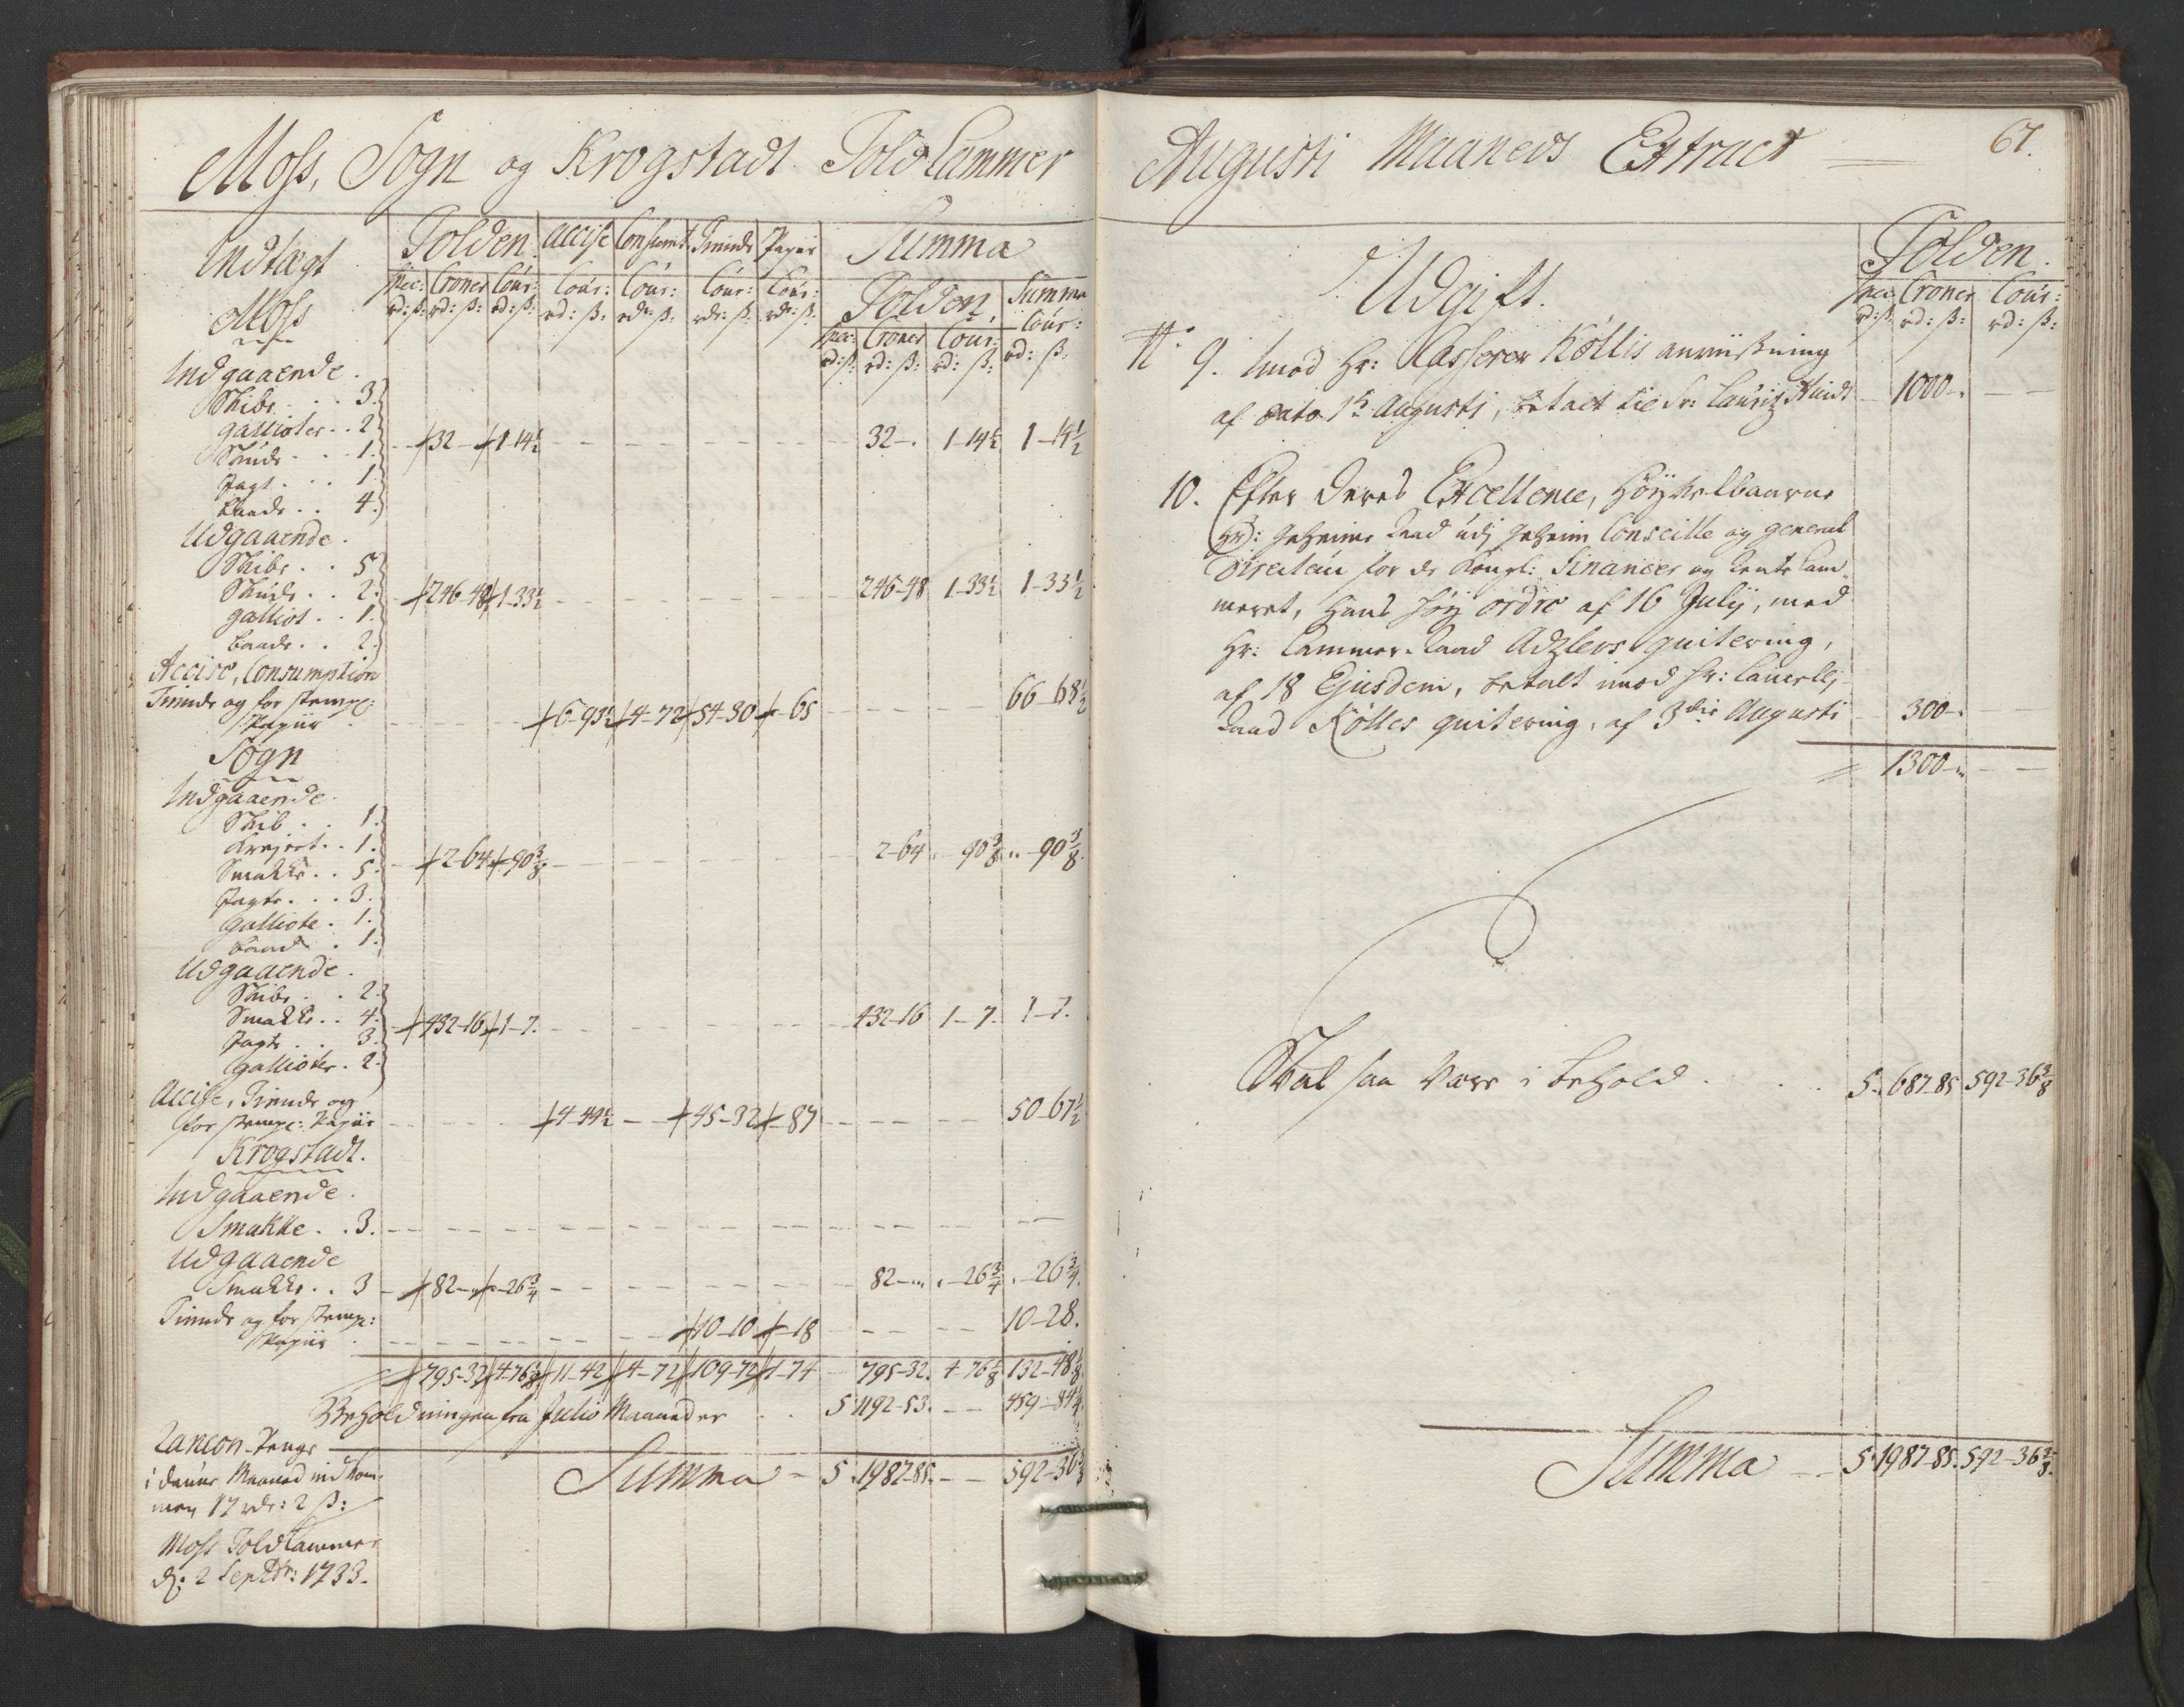 Moss, Sogn og Krogstadt Told Cammer
Indtægt Tolden. Accise Consumt: Tiende Papiir Summa
Spec: Croner Cour: Cour: Cour: Cour: Cour: Tolden. Summa
Moss
rd: ß: rd: ß: rd: ß: rd: ß: rdr: ß: rdr: ß: rdr: ß: Spec: Croner Cour: Cour:
rd: ß: rd: ß: rd: ß: rd: ß:
Indgaaende.
Skibe . . 3.
gallioter . . 2
Skude . . 1. 32 - 1-14½ 32-. 1-14½ 1-14½
Jagt . . . 1.
baade . . 4.
Udgaaende.
Skibe . . 5
Skude . . 2. 246-48 1-33½ 246-48 1-33½ 1-33½
galliot . . 1.
baade . . 2.
Accise, Consumption
Tiende og for stempl:
Papiir 6-93½ 4-72 54-30 -65 66-68½
Sogn
Indgaaende.
Skib . . 1.
Krejert . . 1.
Smakke . . 5. 2-64 -90⅜ 2-64 -90⅜ -90⅜
Jagte . . . 3.
galliote . 1.
baad . 1.
Udgaaende.
Skibe . . 2.
Smakke . . 4. 432-16 1-7. 432-16 1-7. 1-7.
Jagte . . 3.
gallioter . 2.
Accise, Tiende og
for stempl: Papiir 4-44½ 45-32 -87 50-67½
Krogstadt.
Indgaaende.
Smakke . . 3.
Udgaaende
Smakke . . 3 82- -26¾ 82- -26¾ -26¾
Tiende og for stempl:
Papiir 10-10 -18 10-28.
795-32 4-76⅛ 11-42 4-72 109-72 1-74 795-32. 4-76⅛ 132-48⅛
Beholdningen fra Julio Maaneder . . 5 1192-53. - - 459-84¼
Rancon-Penge
i denne Maaned indkom- Summa - 5 1987-85. - - 592-36⅜
men 17 rdr: 2 ß:
Moss Toldkammer
d: 2 Septbr: 1733.
Augusti Maaneds Extract 67.
Udgift. Tolden.
Spec: Croner Cour:
rd: ß: rd: ß: rd: ß:
N. 9. Imod Hr: Casserer Köllis anviisning
af dato 1te Augusti, betalt til Sr: Lauritz Hvidt 1000-.
10. Efter deres Excellence, Höyvelbaarne
Hr: geheime Raad udj geheim Conseille og general
Directeur for de Kongl: Financer og Rente Cam-
meret, Hans höy ordre af 16 Julij, med
Hr: Cammer-Raad Adzlers quitering,
af 18 Ejusdem, betalt imod Hr: Cancellj
Raad Kölles quitering, af 3die Augusti 300-.
1300-. - -
Skal saa være i behold . . . 5. 687-85 592-36⅜
Summa - - 5. 1987-85. 592-36⅜.